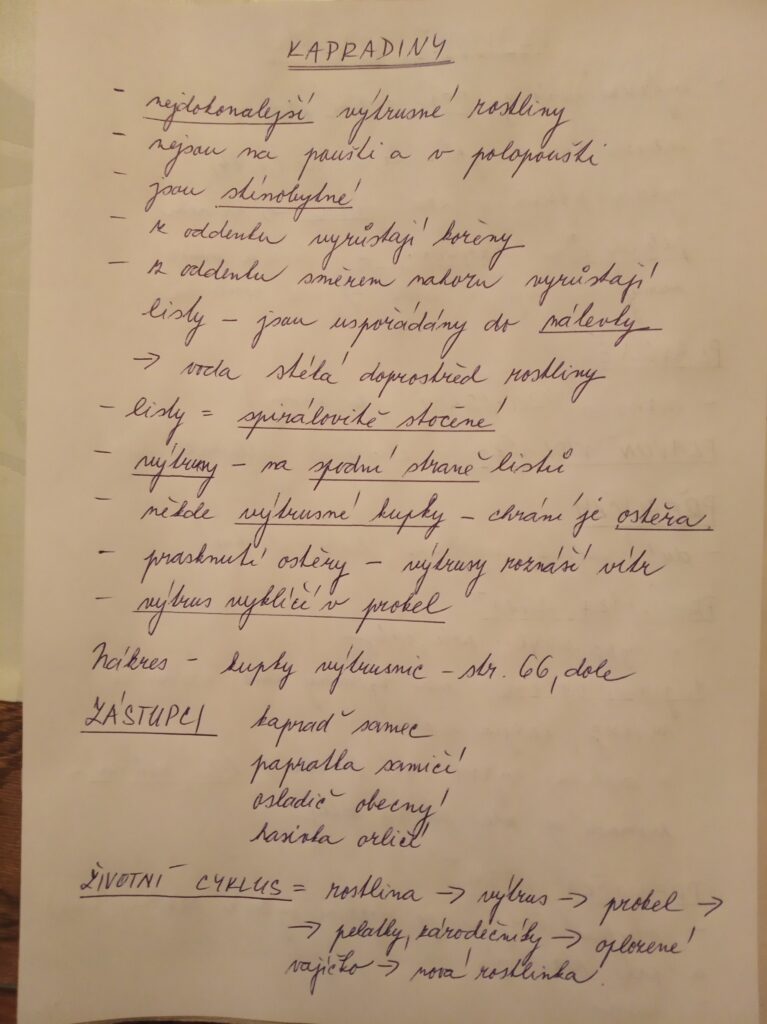 KAPRADINY
- nejdokonalejší výtrusné rostliny
- nejsou na poušti a v polopoušti
- jsou stínobytné
- z oddenku vyrůstají kořeny
- z oddenku směrem nahoru vyrůstají
listy - jsou uspořádány do nálevky
→ voda stéká doprostřed rostliny
- listy = spirálovitě stočené
- výtrusy - na spodní straně listů
- někde výtrusné kupky - chrání je ostěra.
- prasknutí ostěry - výtrusy roznáší vítr
- výtrus vyklíčí v prokel
Nákres - kupky výtrusnic - str. 66, dole
ZÁSTUPCI kapraď samec
papratka samičí
osladič obecný
hasivka orličí
ŽIVOTNÍ CYKLUS = rostlina → výtrus → prokel →
→ pelatky, zárodečníky → oplozené
vajíčko → nová rostlinka.